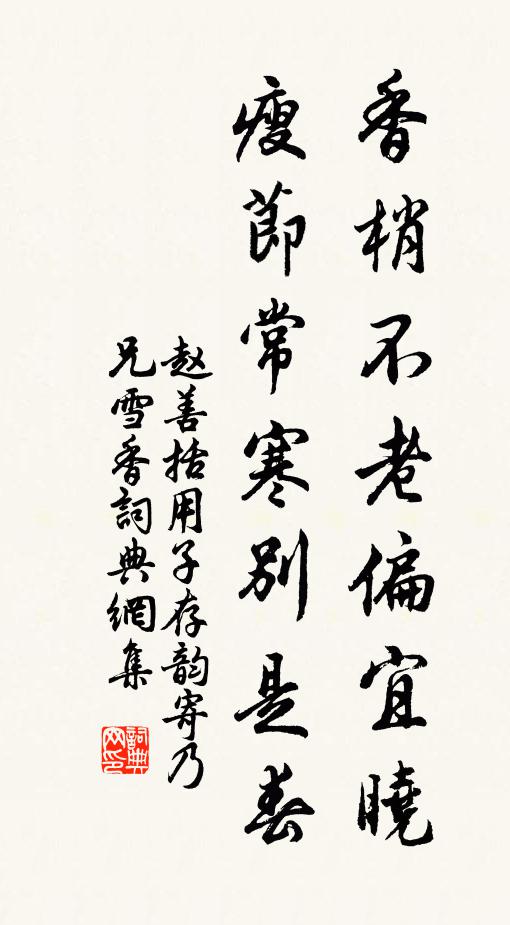 香梢不老偏宜曉
瘦節常寒別是春
赵善括用子存韵寄乃
兄雪香詞典網集
詞典网印